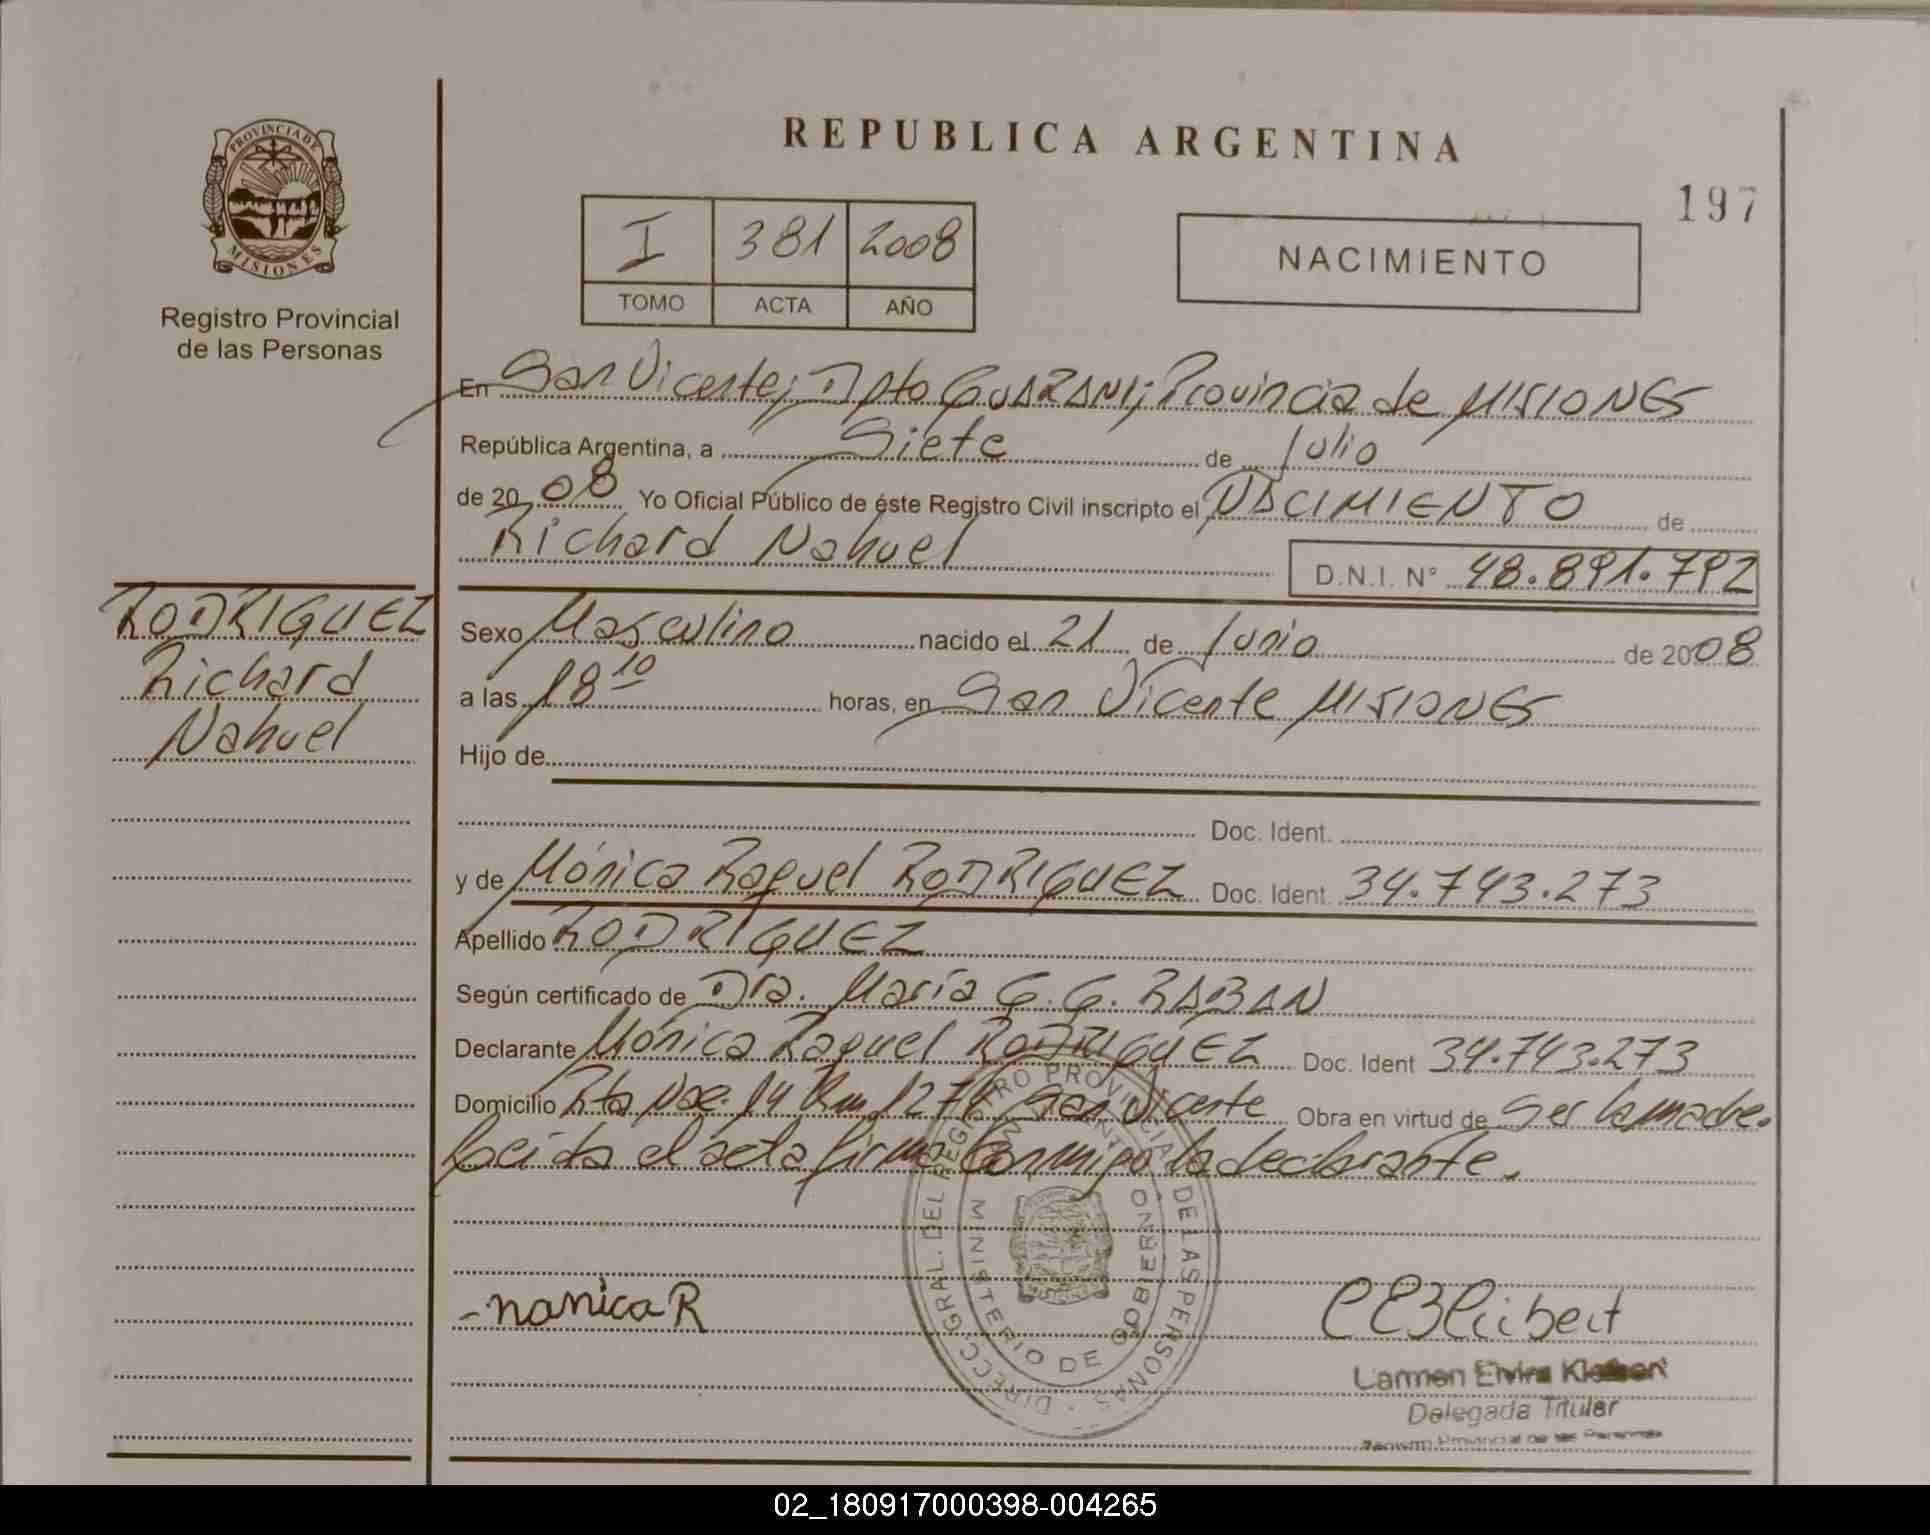 REPUBLICA ARGENTINA
197
PROVINCIA DE
MISIONES
Registro Provincial
de las Personas
I 381 2008
TOMO ACTA AÑO
NACIMIENTO
En San Vicente; Dpto GUARANI; Provincia de MISIONES
República Argentina, a Siete de Julio
de 2008 Yo Oficial Público de éste Registro Civil inscripto el NACIMIENTO de
Richard Nahuel
D.N.I. N° 48.891.792
RODRIGUEZ
Richard
Nahuel
Sexo Masculino nacido el 21 de Junio de 2008
a las 18 10 horas, en San Vicente MISIONES
Hijo de
Doc. Ident.
y de Mónica Raquel RODRIGUEZ Doc. Ident. 34.743.273
Apellido RODRIGUEZ
Según certificado de Dra. María G. G. RABAN
Declarante Mónica Raquel RODRIGUEZ Doc. Ident 34.743.273
Domicilio Rta Nac. 14 Km 1274 San Vicente Obra en virtud de Ser la madre.
Leida el acta firma Conmigo la declarante.
DIRECC. GRAL. DEL REGISTRO PROVINCIAL DE LAS PERSONAS
MINISTERIO DE GOBIERNO
-nonica R
Carmen Elvira
Delegada Titular
Registro Provincial de las Personas
02_180917000398-004265